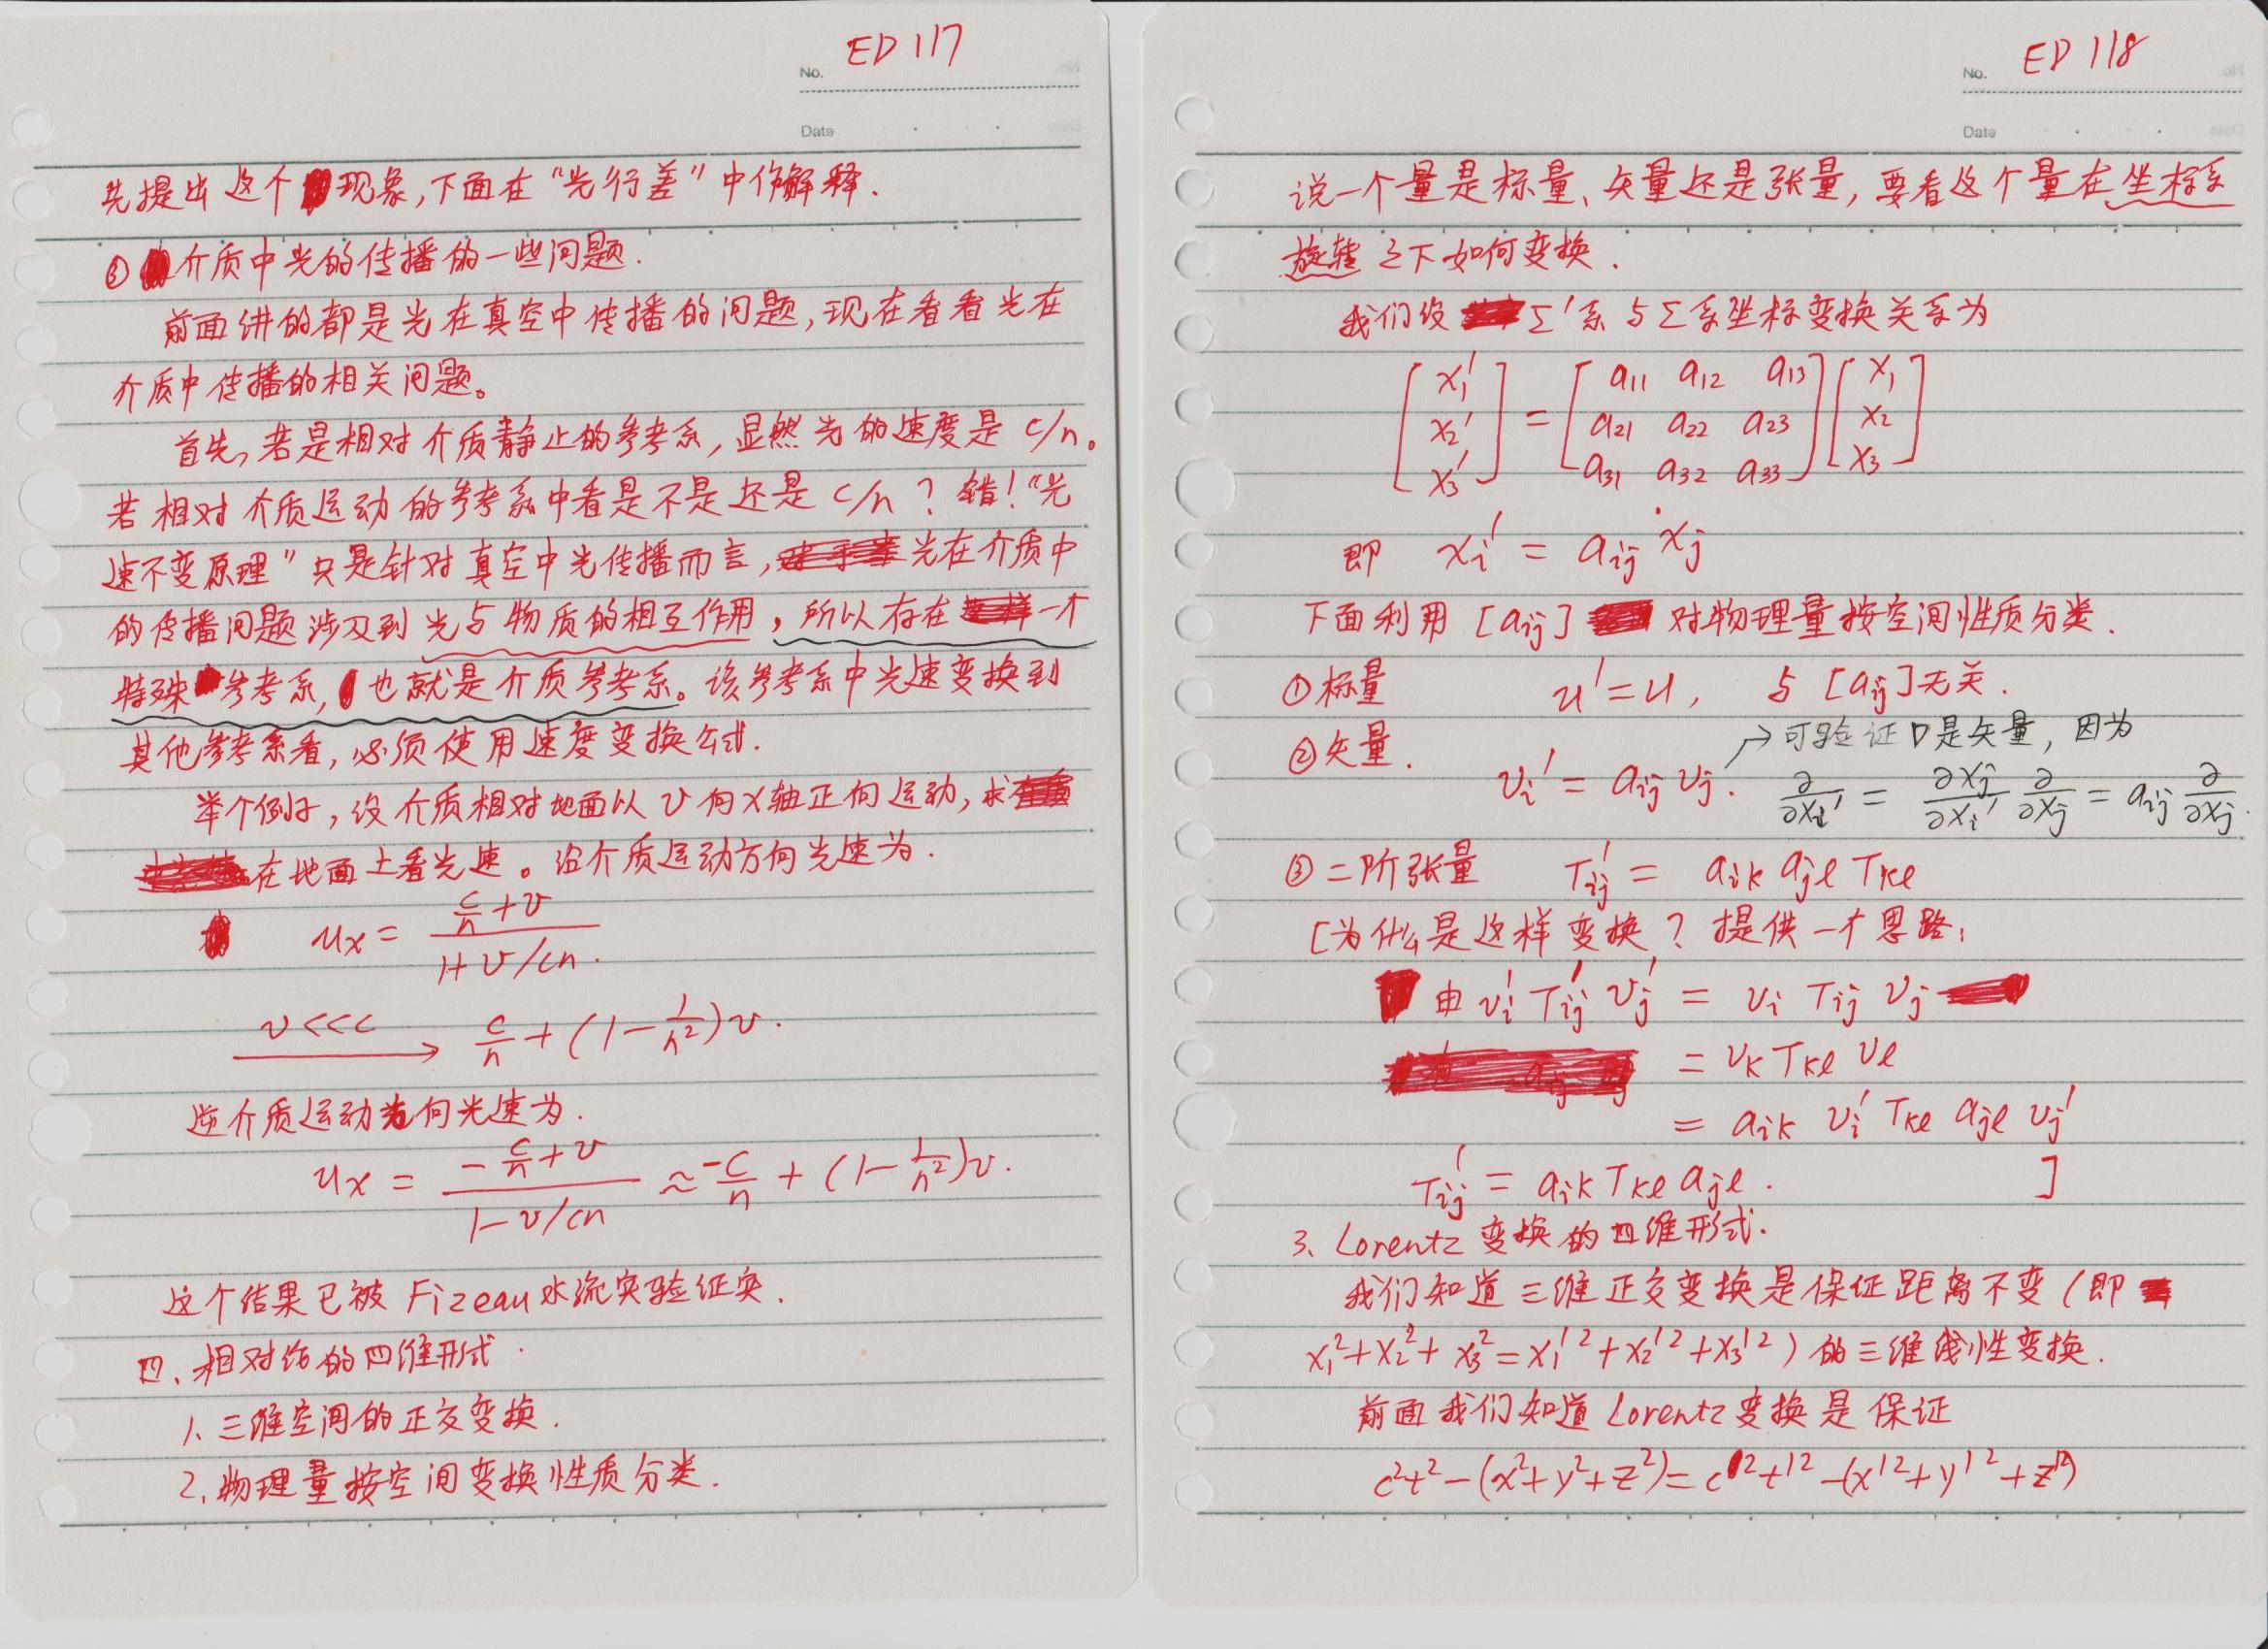 No. ED 117
Date
先提出这个现象,下面在"光行差"中作解释.
③ 介质中光的传播的一些问题.
前面讲的都是光在真空中传播的问题,现在看看光在
介质中传播的相关问题。
首先,若是相对介质静止的参考系,显然光的速度是 c/n。
若相对介质运动的参考系中看是不是还是 c/n ? 错!"光
速不变原理"只是针对真空中光传播而言,光在介质中
的传播问题涉及到光与物质的相互作用,所以存在一个
特殊参考系,也就是介质参考系。该参考系中光速变换到
其他参考系看,必须使用速度变换公式.
举个例子,设介质相对地面以 v 向 x 轴正向运动,求
在地面上看光速。沿介质运动方向光速为.
ux = (c/n + v) / (1 + v/cn).
v <<< c → c/n + (1 - 1/n²)v.
逆介质运动方向光速为.
ux = (-c/n + v) / (1 - v/cn) ≈ -c/n + (1 - 1/n²)v.
这个结果已被 Fizeau 水流实验证实.
四、相对论的四维形式.
1、三维空间的正交变换.
2、物理量按空间变换性质分类.
No. ED 118
Date
说一个量是标量、矢量还是张量,要看这个量在坐标系
旋转之下如何变换.
我们设 Σ'系与Σ系坐标变换关系为
[x₁' x₂' x₃'] = [a₁₁ a₁₂ a₁₃ a₂₁ a₂₂ a₂₃ a₃₁ a₃₂ a₃₃] [x₁ x₂ x₃]
即 xi' = aij xj
下面利用 [aij] 对物理量按空间性质分类.
① 标量 u' = u, 与 [aij] 无关.
② 矢量. vi' = aij vj. → 可验证∇是矢量, 因为
∂/∂xi' = ∂xj/∂xi' ∂/∂xj = aij ∂/∂xj.
③ 二阶张量 Tij' = aik ajl Tkl
[为什么是这样变换? 提供一个思路:
由 vi' Tij' vj' = vi Tij vj
= vk Tkl vl
= aik vi' Tkl ajl vj'
Tij' = aik Tkl ajl. ]
3、Lorentz 变换的四维形式.
我们知道三维正交变换是保证距离不变(即
x₁² + x₂² + x₃² = x₁'² + x₂'² + x₃'²) 的三维线性变换.
前面我们知道 Lorentz 变换是保证
c²t² - (x² + y² + z²) = c²t'² - (x'² + y'² + z'²)